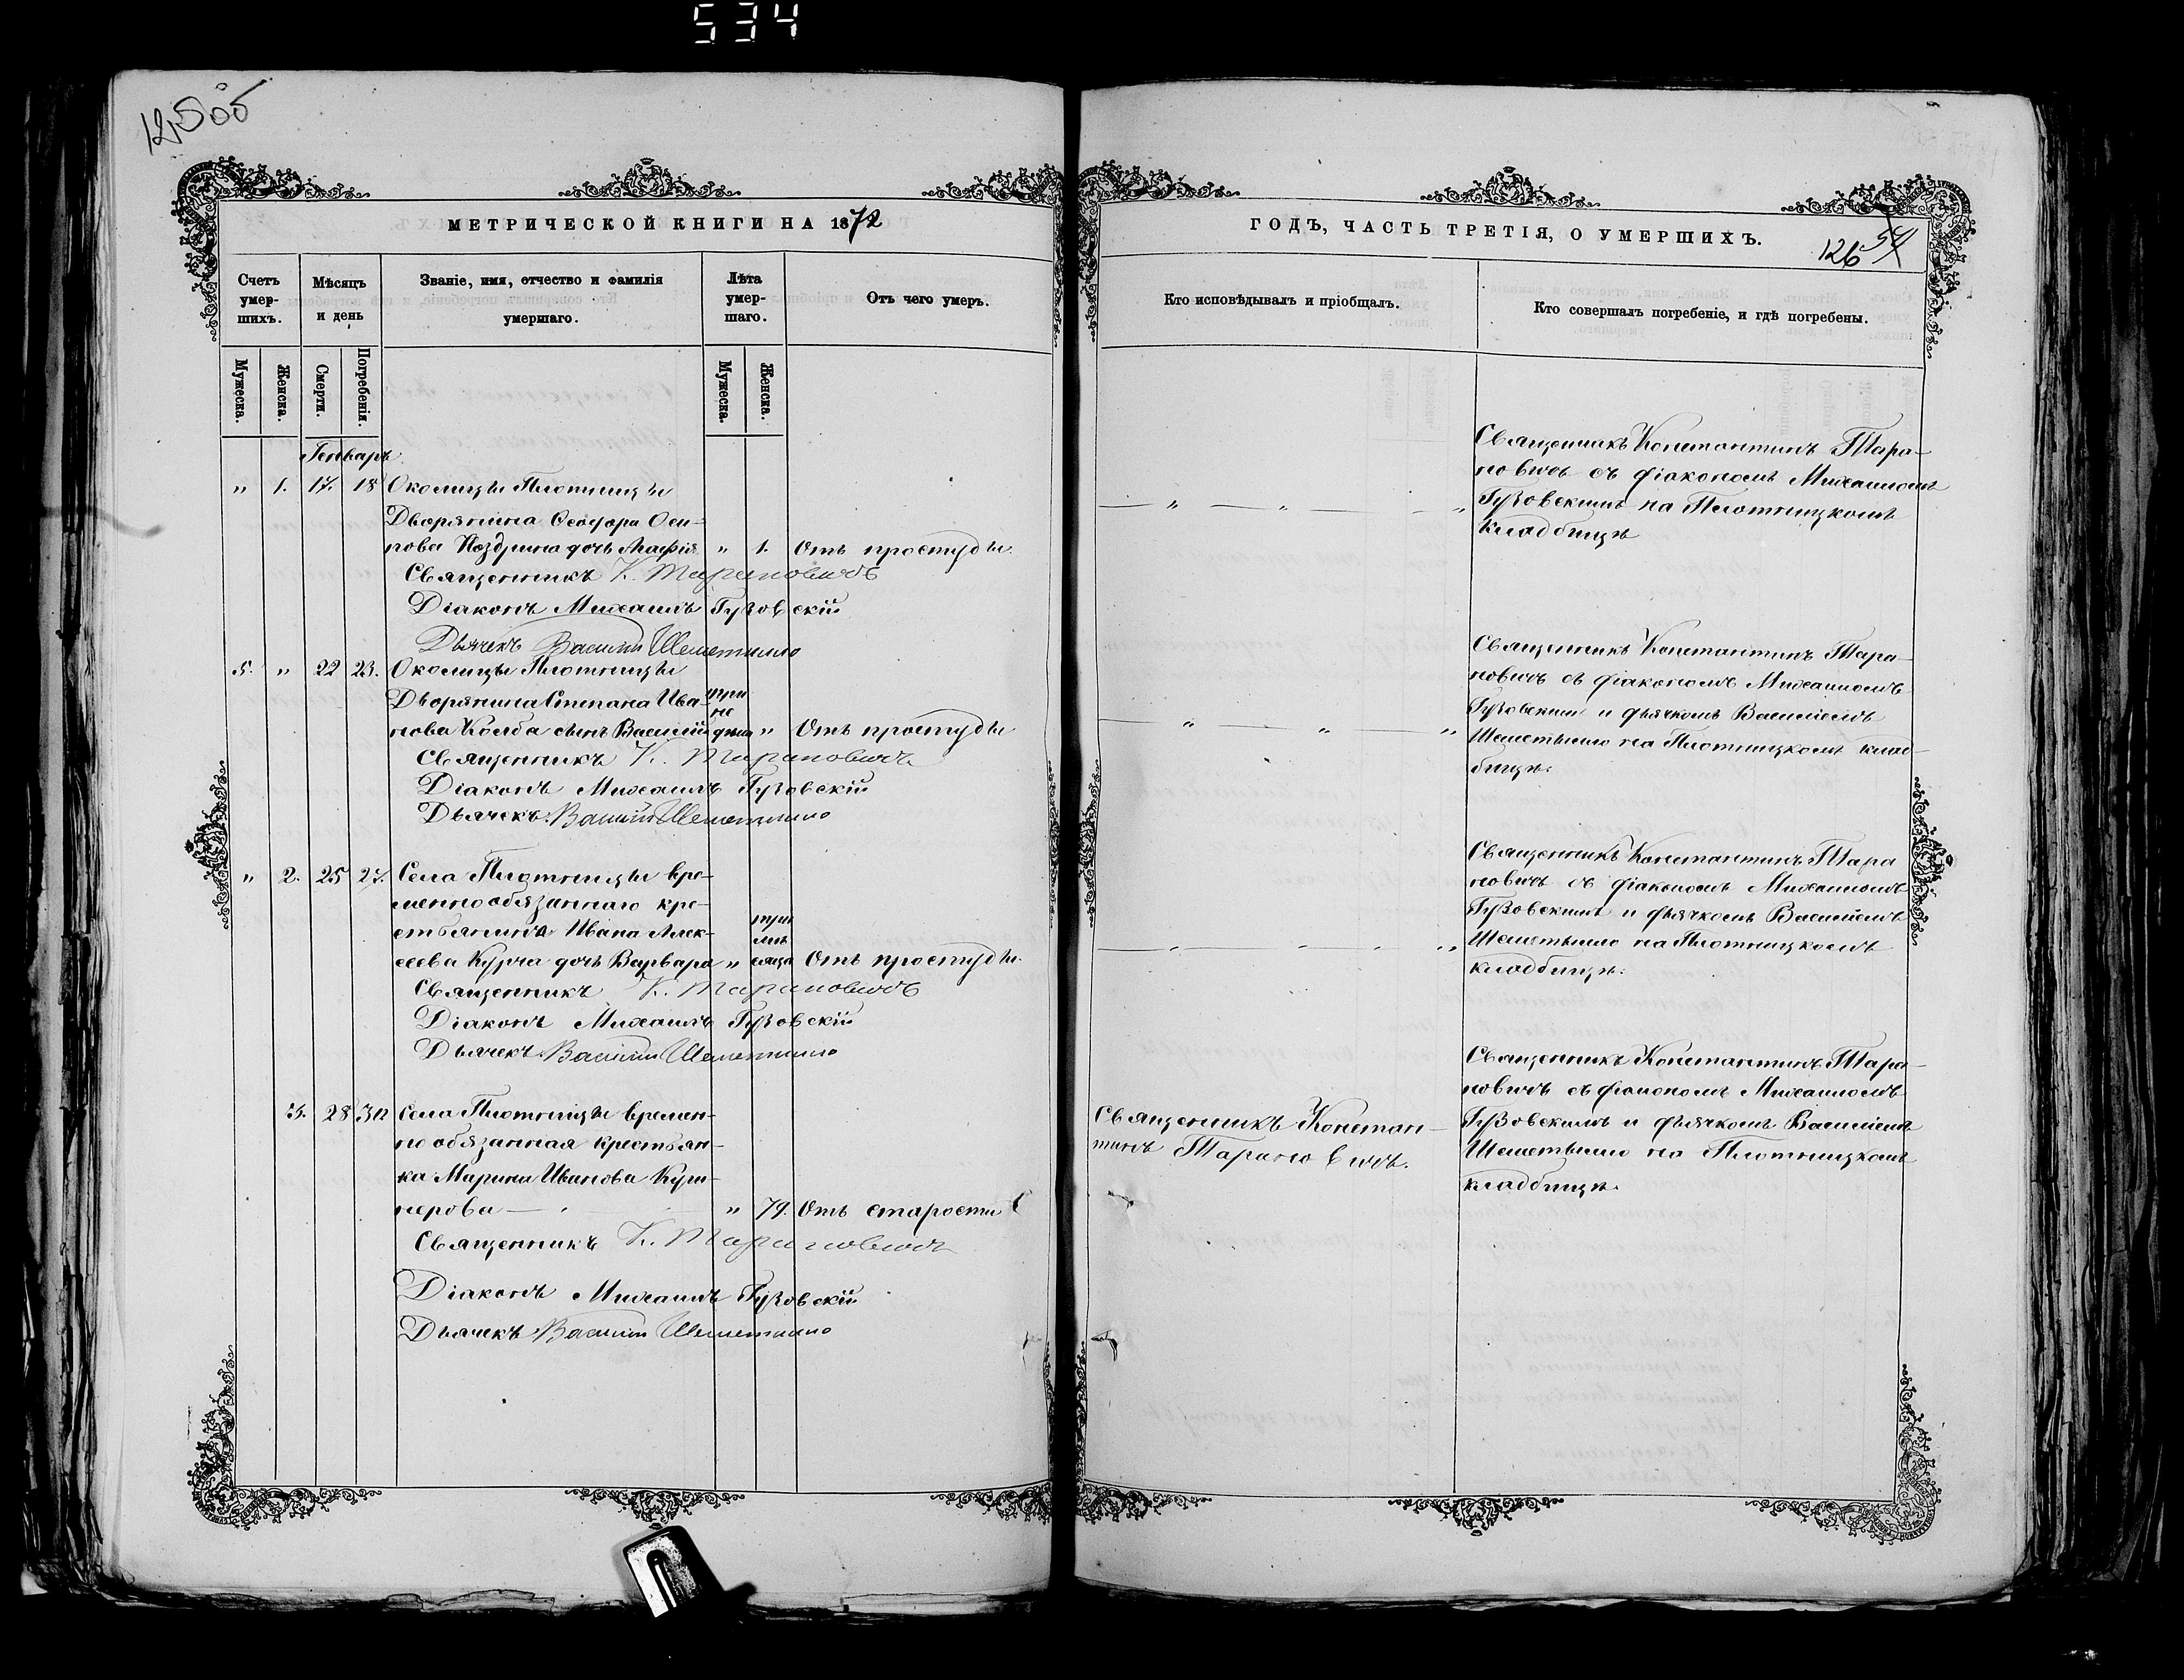 534
12,505
МЕТРИЧЕСКОЙ КНИГИ НА 1872
Счетъ умер-шихъ.
Мѣсяцъ и день
Званіе, имя, отчество и фамилія умершаго.
Лѣта умер-шаго.
Отъ чего умеръ.
Мужеска.
Женска.
Смерти.
Погребенія.
Мужеска.
Женска.
Генварь
" 1. 17. 18 Околицы Плотницы
Дворянина Ѳеодора Оси-
пова дочь " 1. Отъ простуды.
Священникъ К. Тарановичъ
Діаконъ Михаилъ Гузовскій
Дьячекъ Василій Шеметилло
5. " 22 23. Околицы Плотницы
Дворянина Степана Ива- три
не
нова Колба сынъ Василій дѣли " Отъ простуды
Священникъ К. Тарановичъ
Діаконъ Михаилъ Гузовскій
Дьячекъ Василій Шеметилло
" 2. 25 27. Села Плотницы вре-
менно обязаннаго кре-
стьянина Ивана Алек- три
мѣ
сѣева Курча дочь Варвара " сяца Отъ простуды.
Священникъ К. Тарановичъ
Діаконъ Михаилъ Гузовскій
Дьячекъ Василій Шеметилло
3. 28 30 Села Плотницы времен-
но обязанная крестьян-
ка Марина Иванова Куш-
нерова — " 79. Отъ старости
Священникъ К. Тарановичъ
Діаконъ Михаилъ Гузовскій
Дьячекъ Василій Шеметилло
ГОДЪ, ЧАСТЬ ТРЕТІЯ, О УМЕРШИХЪ.
126 54
Кто исповѣдывалъ и пріобщалъ.
Кто совершалъ погребеніе, и гдѣ погребены.
Священникъ Константинъ Тара-
новичъ съ діакономъ Михаиломъ
— " — " — " Гузовскимъ на Плотницкомъ
кладбищѣ
Священникъ Константинъ Тара-
новичъ съ діакономъ Михаиломъ
Гузовскимъ и дьячкомъ Василіемъ
— " — " — " Шеметилло на Плотницкомъ клад-
бищѣ.
Священникъ Константинъ Тара
новичъ съ діакономъ Михаиломъ
Гузовскимъ и дьячкомъ Василіемъ
— " — " — " — " Шеметилло на Плотницкомъ
кладбищѣ.
Священникъ Константинъ Тара-
новичъ съ діакономъ Михаиломъ
Священникъ Констан-
Гузовскимъ и дьячкомъ Василіемъ
тинъ Тарановичъ.
Шеметилло на Плотницкомъ
кладбищѣ.